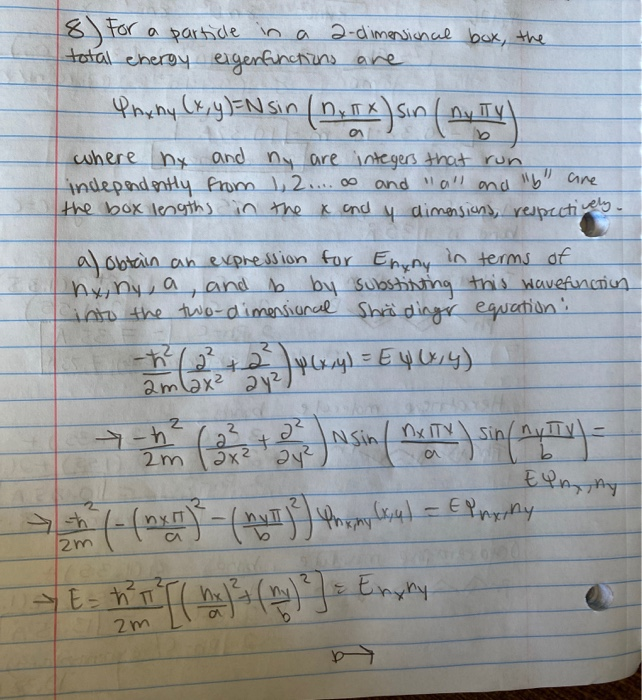 8) For a particle in a 2-dimensional box, the
total energy eigenfunctions are
φnxny(x,y)=N sin (nxπx/a) sin (nyπy/b)
where nx and ny are integers that run
independently from 1,2....∞ and "a" and "b" are
the box lengths in the x and y dimensions, respectively.
a) obtain an expression for Enxny in terms of
nx, ny, a, and b by substituting this wavefunction
into the two-dimensional Shrödingr equation:
-ħ²/2m (∂²/∂x² + ∂²/∂y²) ψ(x,y) = E ψ(x,y)
→ -ħ²/2m (∂²/∂x² + ∂²/∂y²) N sin (nxπx/a) sin (nyπy/b) =
Eφnx,ny
→ -ħ²/2m (-(nxπ/a)² - (nyπ/b)²) φnx,ny(x,y) = Eφnx,ny
→ E = ħ²π²/2m [(nx/a)² + (ny/b)²] = Enxny
b →